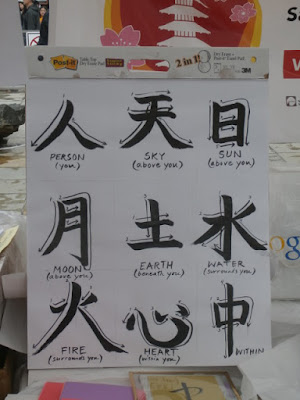 Post-it
2 in 1!
3M
人 天 日
PERSON SKY SUN
(you) (above you) (above you)
月 土 水
MOON EARTH WATER
(above you) (beneath you) (surrounds you)
火 心 中
FIRE HEART WITHIN
(surrounds you) (within you)